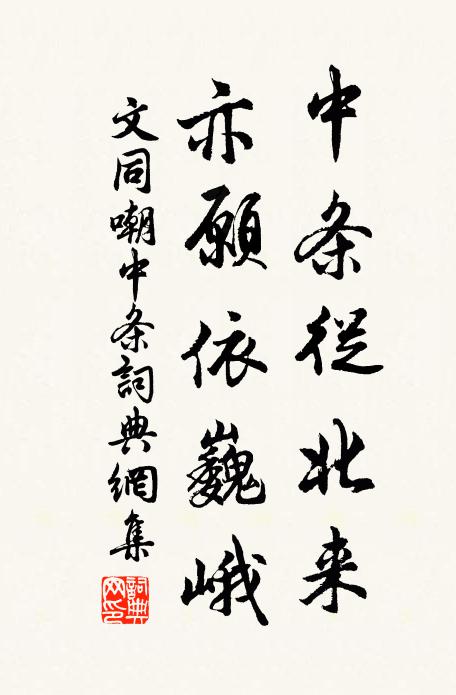 中条從北来
亦願依巍峨
文同嘲中条詞典網集
詞典網印